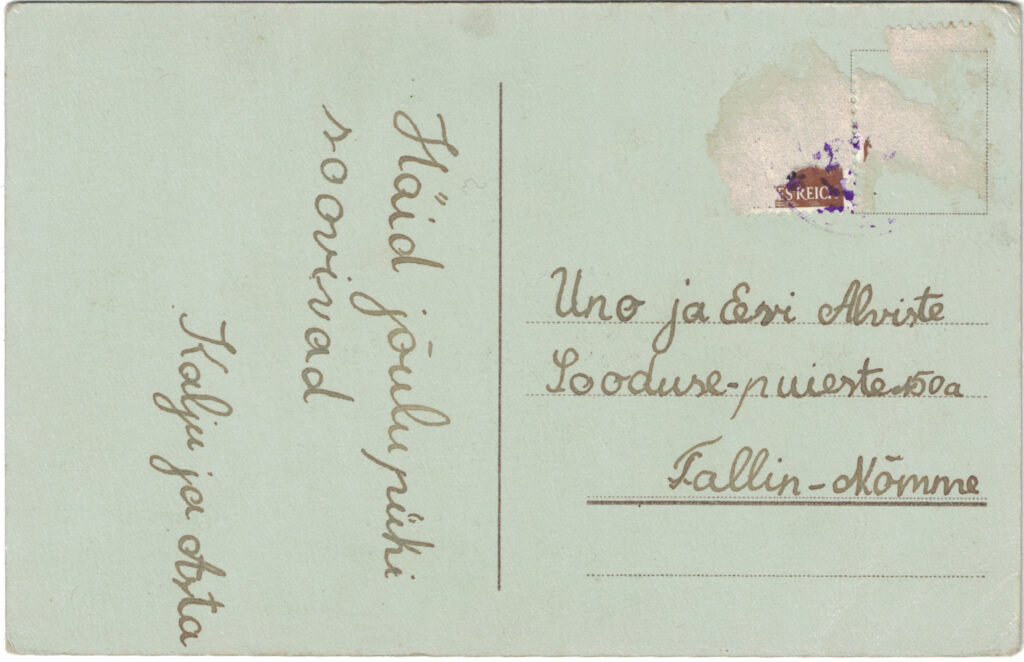 Häid jõulupühi
soovivad
Kalju ja Asta
ES REIC
Uno ja Eevi Alviste
Sooduse-puiestee 50a
Tallin-Nõmme